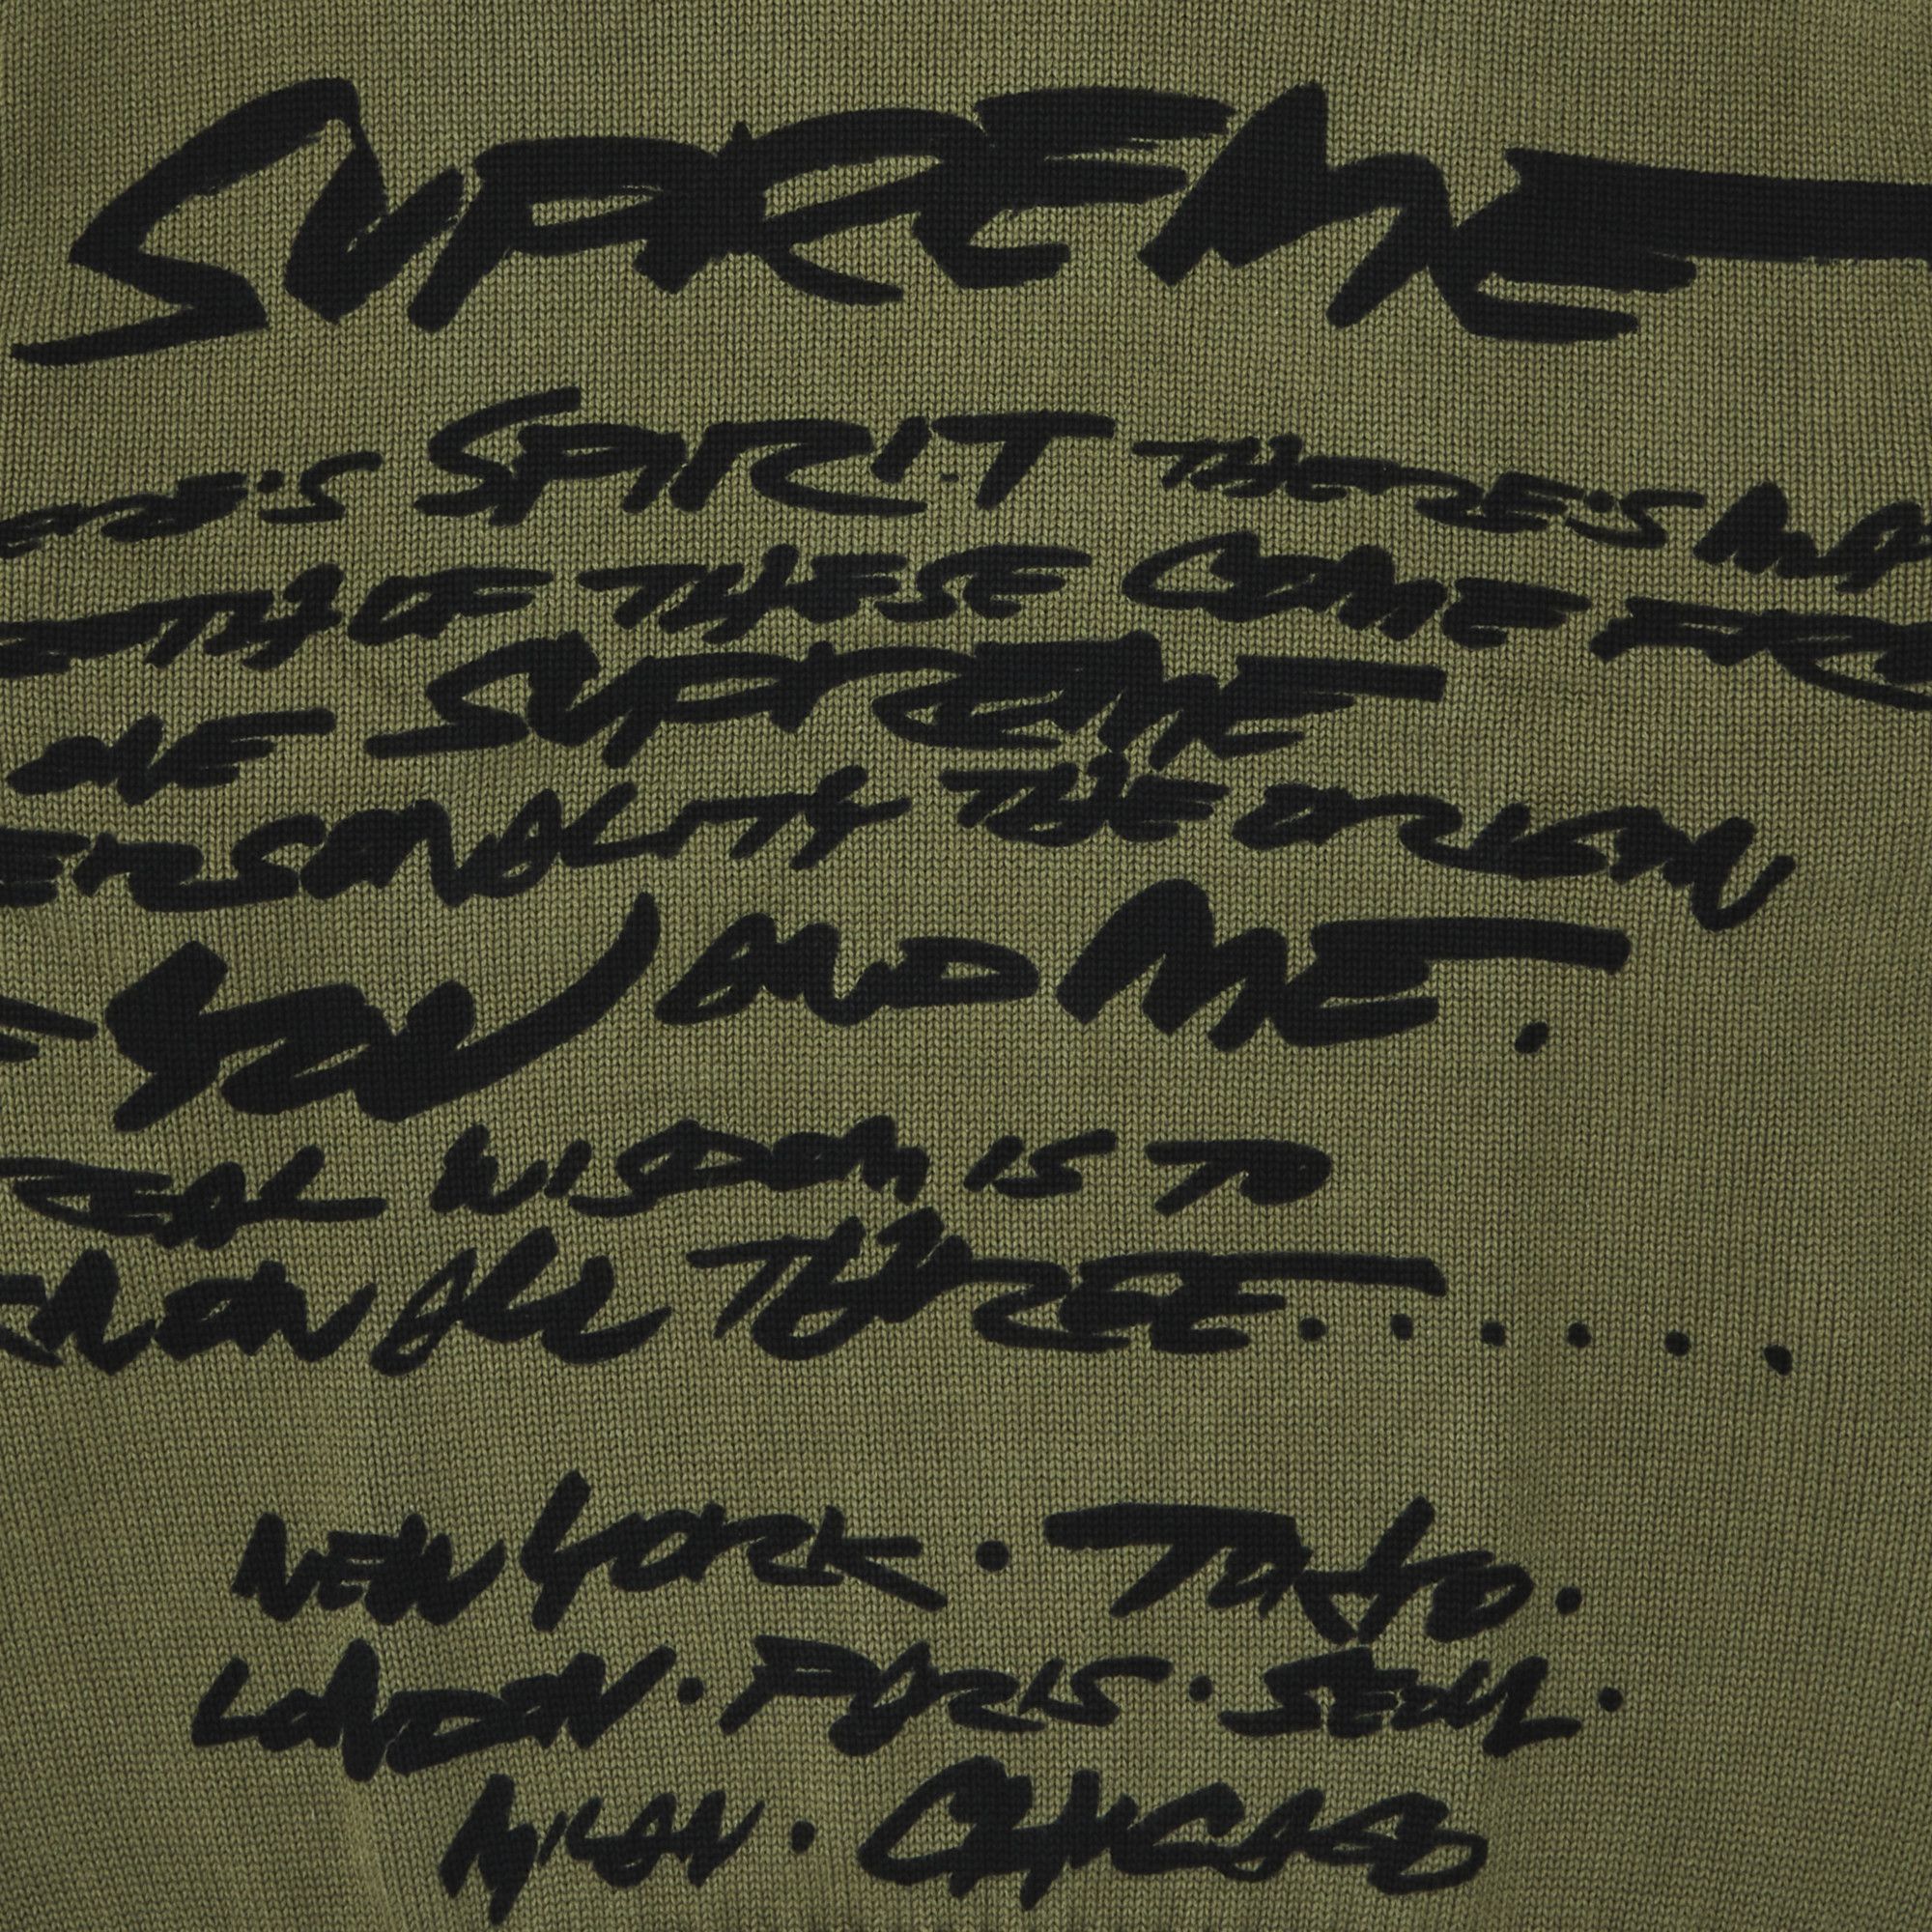 SUPREME
ERE'S SPIRIT THERE'S
OF THESE COME FRO
ONE SUPREME
ERSONALITY THE ORIGIN
YOU AND ME.
REAL WISDOM IS TO
ON ALL THREE......
NEW YORK · TOKYO ·
LONDON · PARIS · SEOUL ·
MILAN · CHICAGO